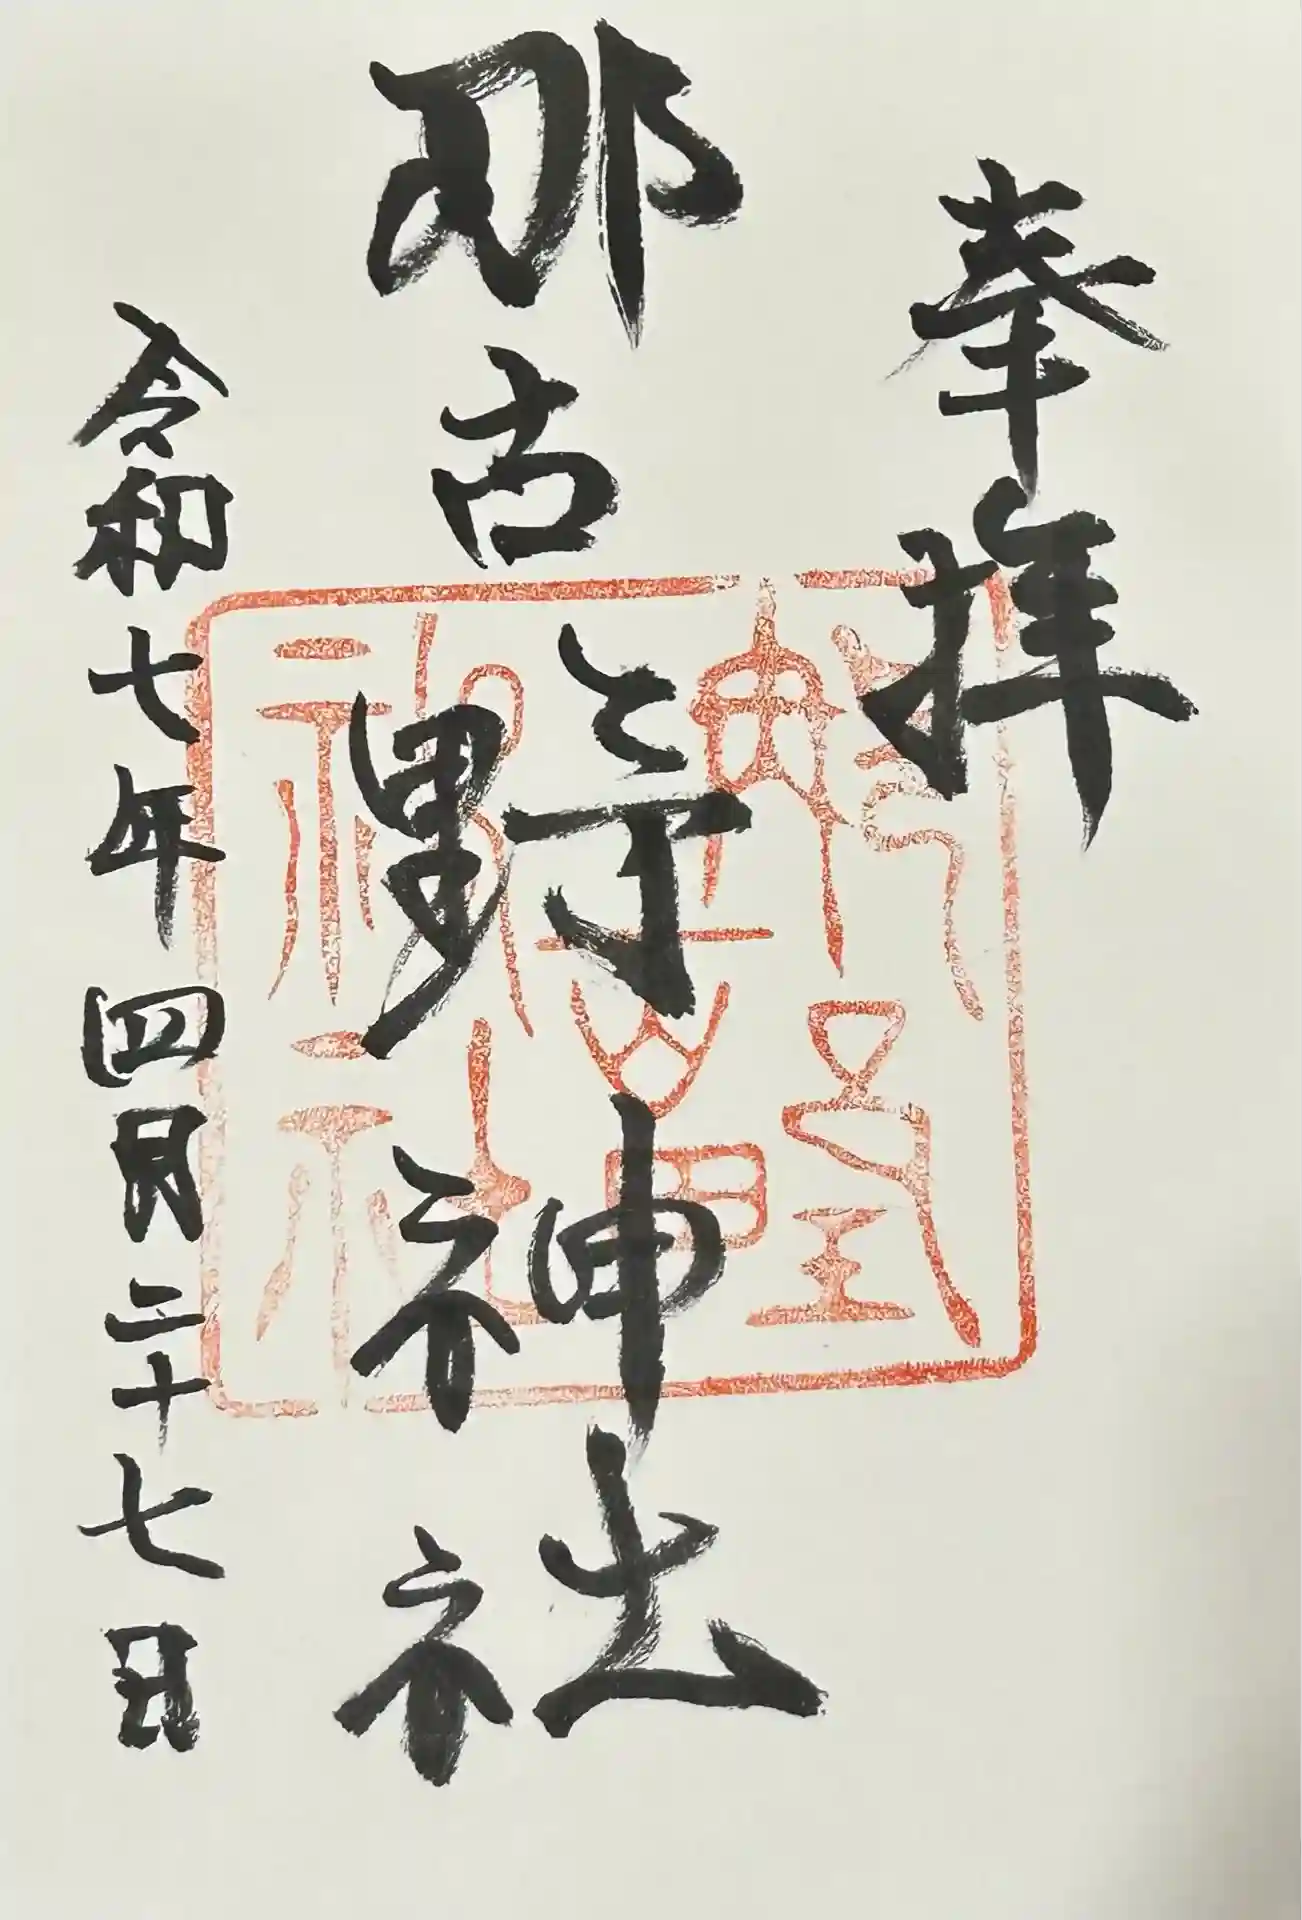 奉拝
那古野神社
令和七年四月二十七日
那古野神社